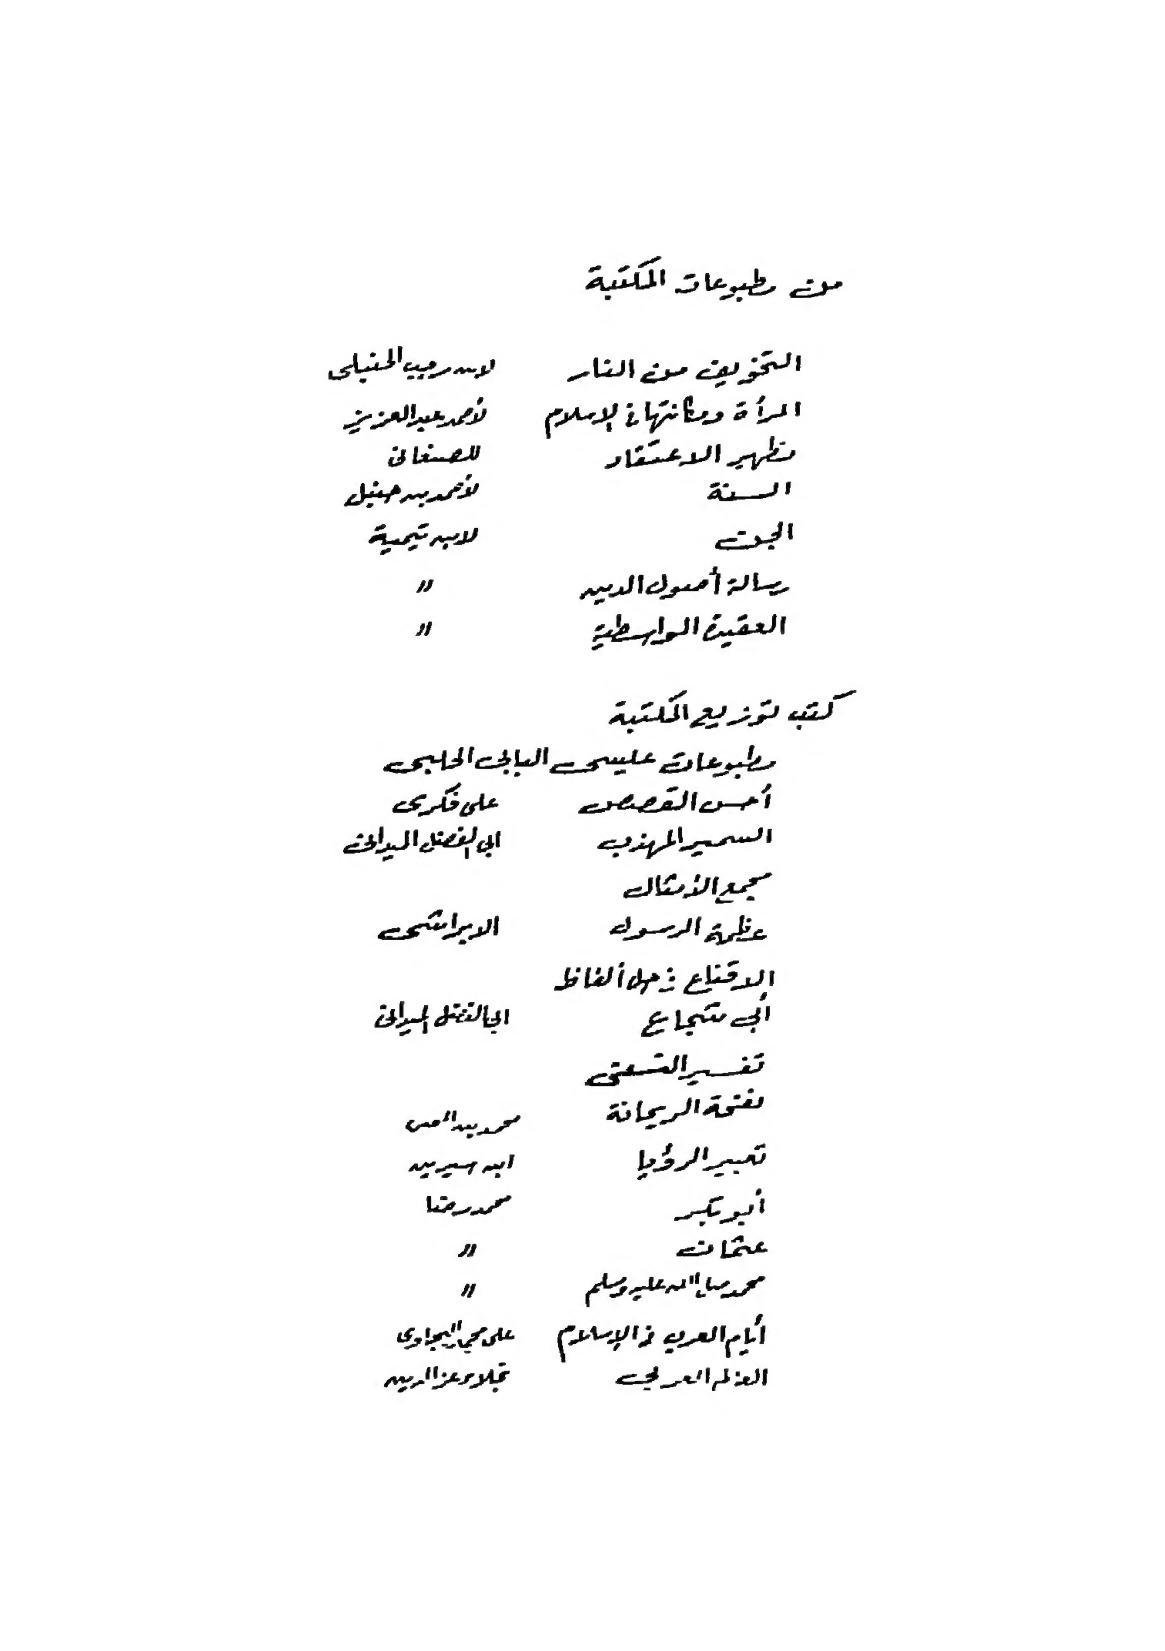 من مطبوعات المكتبة
التخويف من النار لابن رجب الحنبلى
المرأة ومكانتها في الإسلام لأحمد عبد العزيز
تطهير الاعتقاد للصنعانى
السنة لأحمد بن حنبل
الجن لابن تيمية
رسالة أصول الدين "
العقيدة الواسطية "
كتب توزيع المكتبة
مطبوعات عيسى البابى الحلبى
أحسن القصص على فكرى
السمير المهذب ابي الفضل الميدانى
مجمع الأمثال
عظمة الرسول الابراشى
الاقناع في حل ألفاظ
أبى شجاع ابي الفضل الميدانى
تفسير النسفى
نفحة الريحانة محمد
تعبير الرؤيا ابن سيرين
أبو بكر محمد رضا
عثمان "
محمد صلى الله عليه وسلم "
أيام العرب في الإسلام على محمد البجاوى
العالم العربى نجلاء عز الدين